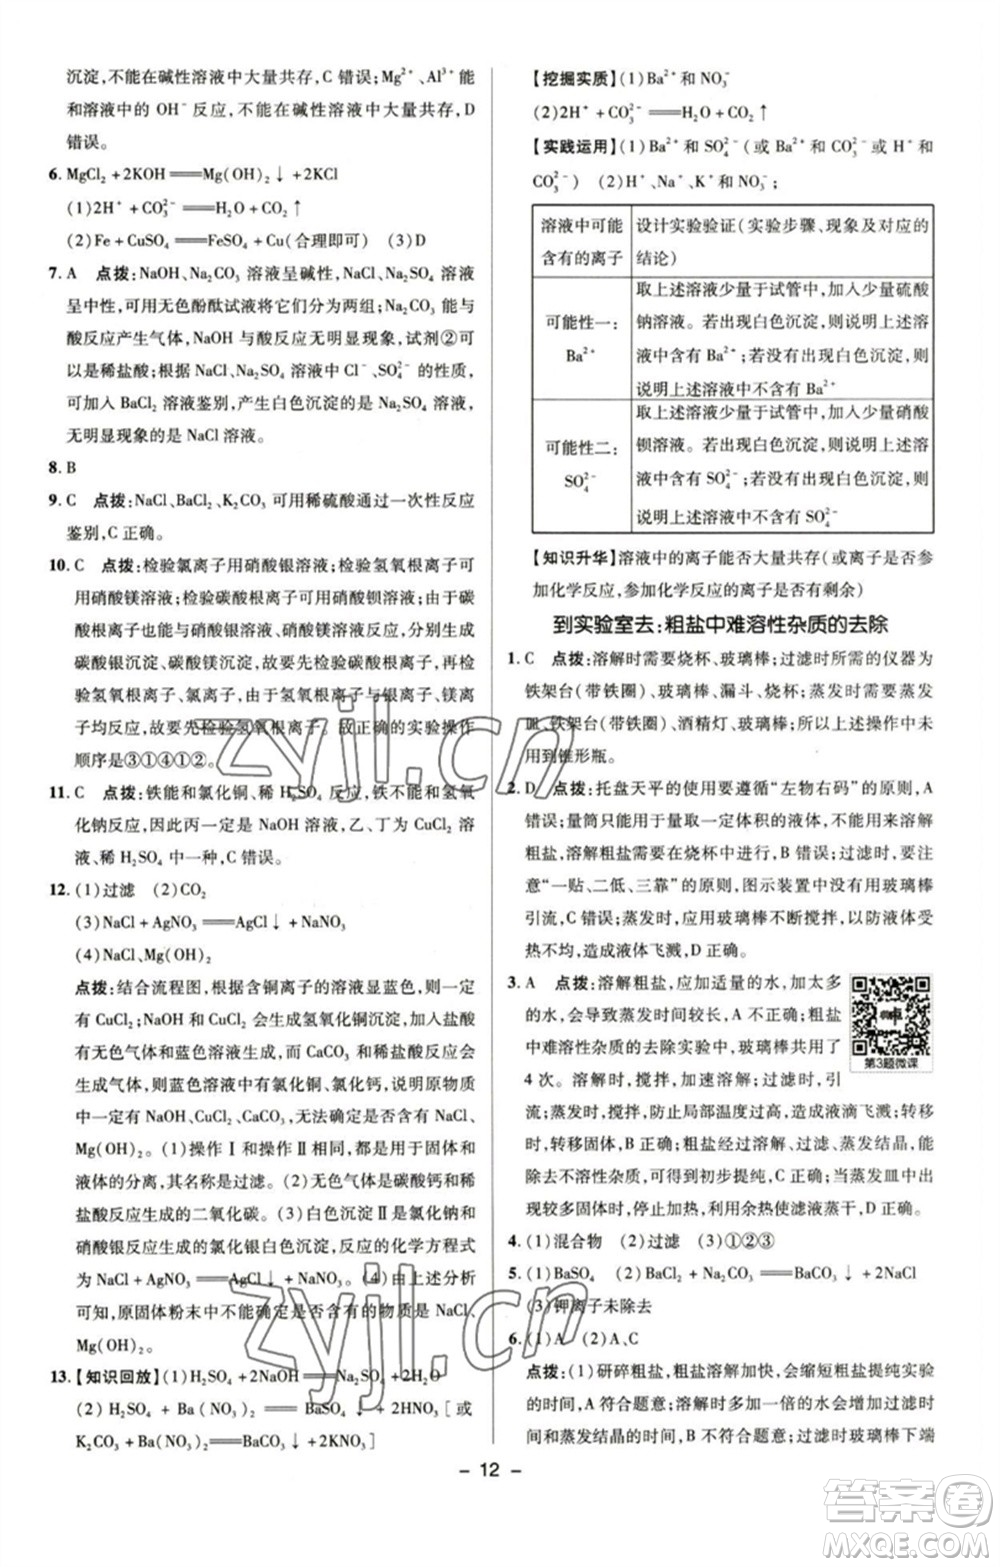 沉淀,不能在碱性溶液中大量共存,C 错误;Mg²⁺、Al³⁺能
和溶液中的 OH⁻ 反应,不能在碱性溶液中大量共存,D
错误。
6. MgCl₂ +2KOH══Mg(OH)₂↓+2KCl
(1)2H⁺ +CO₃²⁻══H₂O+CO₂↑
(2)Fe+CuSO₄══FeSO₄+Cu(合理即可) (3)D
7. A 点拨:NaOH、Na₂CO₃ 溶液呈碱性,NaCl、Na₂SO₄ 溶液
呈中性,可用无色酚酞试液将它们分为两组;Na₂CO₃ 能与
酸反应产生气体,NaOH 与酸反应无明显现象,试剂②可
以是稀盐酸;根据 NaCl、Na₂SO₄ 溶液中 Cl⁻、SO₄²⁻的性质,
可加入 BaCl₂ 溶液鉴别,产生白色沉淀的是 Na₂SO₄ 溶液,
无明显现象的是 NaCl 溶液。
8. B
9. C 点拨:NaCl、BaCl₂、K₂CO₃ 可用稀硫酸通过一次性反应
鉴别,C 正确。
10. C 点拨:检验氯离子用硝酸银溶液;检验氢氧根离子
可用硝酸镁溶液;检验碳酸根离子用硝酸钡溶液。由于碳
酸根离子也能与硝酸银溶液、硝酸镁溶液反应,分别生成
碳酸银沉淀、碳酸镁沉淀,所以首先检验碳酸根离子,再检
验氢氧根离子、氯离子;由于氢氧根离子与银离子、镁离
子均反应,故要先检验氢氧根离子。故正确的实验操作
顺序是③①④①②。
11. C 点拨:铁能和氯化铜、稀 H₂SO₄ 反应,铁不能和氢氧
化钠反应,因此丙一定是 NaOH 溶液,乙、丁为 CuCl₂ 溶
液、稀 H₂SO₄ 中一种,C 错误。
12. (1)过滤 (2)CO₂
(3)NaCl+AgNO₃══AgCl↓+NaNO₃
(4)NaCl、Mg(OH)₂
点拨:结合流程图,根据含铜离子的溶液显蓝色,一定有
CuCl₂;NaOH 和 CuCl₂ 会生成氢氧化铜沉淀,加入盐酸
有无色气体和蓝色溶液生成,而 CaCO₃ 和稀盐酸反应生
成气体,则蓝色溶液中含有氯化铜、氯化钙,说明原物质
中一定有 NaOH、CuCl₂、CaCO₃,无法确定是否含有 NaCl、
Mg(OH)₂。(1)操作Ⅰ和操作Ⅱ都是用于固体和
液体的分离,其名称是过滤。(2)无色气体是碳酸钙和稀
盐酸反应生成的二氧化碳。(3)白色沉淀Ⅱ是氯化钠和
硝酸银反应生成的氯化银白色沉淀,反应的化学方程式
为 NaCl+AgNO₃══AgCl↓+NaNO₃。(4)由上述分析
可知,原固体粉末中不能确定是否含有的物质是 NaCl、
Mg(OH)₂。
13. 【知识回放】(1)H₂SO₄+2NaOH══Na₂SO₄+2H₂O
(2)H₂SO₄+Ba(NO₃)₂══BaSO₄↓+2HNO₃[或
K₂CO₃+Ba(NO₃)₂══BaCO₃↓+2KNO₃]
【挖掘实质】(1)Ba²⁺和 NO₃⁻
(2)2H⁺+CO₃²⁻══H₂O+CO₂↑
【实践运用】(1)Ba²⁺和 SO₄²⁻(或 Ba²⁺和 CO₃²⁻或 H⁺和
CO₃²⁻) (2)H⁺、Na⁺、K⁺和 NO₃⁻;
溶液中可能
含有的离子
设计实验验证(实验步骤、现象及对应的
结论)
可能性一:
Ba²⁺
取上述溶液少量于试管中,加入少量硫酸
钠溶液。若出现白色沉淀,则说明上述溶
液中含有 Ba²⁺;若没有出现白色沉淀,则
说明上述溶液中不含有 Ba²⁺
可能性二:
SO₄²⁻
取上述溶液少量于试管中,加入少量硝酸
钡溶液。若出现白色沉淀,则说明上述溶
液中含有 SO₄²⁻;若没有出现白色沉淀,则
说明上述溶液中不含有 SO₄²⁻
【知识升华】溶液中的离子能否大量共存(或离子是否参
加化学反应,参加化学反应的离子是否有剩余)
到实验室去:粗盐中难溶性杂质的去除
1. C 点拨:溶解时需要烧杯、玻璃棒;过滤时所需的仪器为
铁架台(带铁圈)、玻璃棒、漏斗、烧杯;蒸发时需要蒸发
皿、铁架台(带铁圈)、酒精灯、玻璃棒;所以上述操作中未
用到锥形瓶。
2. D 点拨:托盘天平的使用要遵循“左物右码”的原则,A
错误;量筒只能用于量取一定体积的液体,不能用来溶解
粗盐,溶解粗盐需要在烧杯中进行,B 错误;过滤时,要注
意“一贴、二低、三靠”的原则,图示装置中没有用玻璃棒
引流,C 错误;蒸发时,应用玻璃棒不断搅拌,以防液体受
热不均,造成液体飞溅,D 正确。
3. A 点拨:溶解粗盐,应加适量的水,加太多
的水,会导致蒸发时间较长,A 不正确;粗盐
中难溶性杂质的去除实验中,玻璃棒共用了
4 次。溶解时,搅拌,加速溶解;过滤时,引
流;蒸发时,搅拌,防止局部温度过高,造成液滴飞溅;转移
时,转移固体,B 正确;粗盐经过溶解、过滤、蒸发结晶,能
除去不溶性杂质,可得到初步提纯,C 正确;当蒸发皿中出
现较多固体时,停止加热,利用余热使滤液蒸干,D 正确。
第3题微课
4. (1)混合物 (2)过滤 (3)①②③
5. (1)BaSO₄ (2)BaCl₂+Na₂CO₃══BaCO₃↓+2NaCl
(3)钾离子未除去
6. (1)A (2)A、C
点拨:(1)研碎粗盐,粗盐溶解加快,会缩短粗盐提纯实验
的时间,A 符合题意;溶解时多加一倍的水会增加过滤时
间和蒸发结晶的时间,B 不符合题意;过滤时玻璃棒下端
- 12 -
zyjl.cn
zyjl.cn
答案圈
MXQE.COM